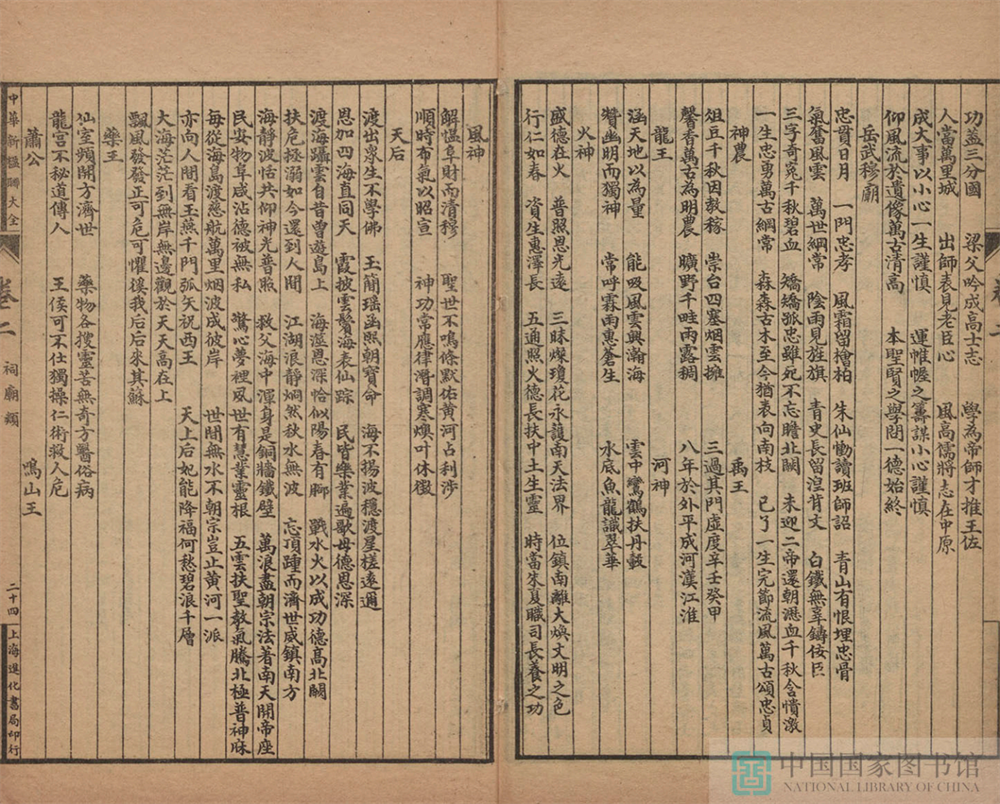 功蓋三分國 梁父吟成高士志 學為帝師才推王佐
人當萬里城 出師表見老臣心 風高儒將志在中原
成大事以小心一生謹慎 運帷幄之籌謀小心謹慎
仰風流於遺像萬古清高 本聖賢之學問一德始終
岳武穆廟
忠貫日月 一門忠孝 風霜留檜柏 朱仙慟讀班師詔 青山有恨埋忠骨
氣奮風雲 萬世綱常 陰雨見旌旗 青史長留涅背文 白鐵無辜鑄佞臣
三字奇冤千秋碧血 矯矯孤忠雖死不忘瞻北闕 未迎二帝還朝懣血千秋含憤激
一生忠勇萬古綱常 森森古木至今猶表向南枝 已了一生完節流風萬古頌忠貞
神農 禹王
俎豆千秋因教稼 崇台四塞烟雲擁 三過其門虛度辛壬癸甲
馨香萬古為明農 曠野千畦雨露稠 八年於外平成河漢江淮
龍王 河神
涵天地以為量 能吸風雲興瀚海 雲中鸞鶴扶丹轂
贊幽明而獨神 常呼霖雨惠蒼生 水底魚龍識翠華
火神
盛德在火 普照恩光遠 三昧燦瓊花永護南天法界 位鎮南離大煥文明之色
行仁如春 資生惠澤長 五通照火德長扶中土生靈 時當朱夏職司長養之功
風神
解慍阜財而清穆 聖世不鳴條默佑黃河占利涉
順時布氣以昭宣 神功常應律潛調寒燠叶休徵
天后
渡出衆生不學佛 玉簡瑤函熙朝寶命 海不揚波穩渡星槎遠邇
恩加四海直同天 霞披雲鬢海表仙踪 民皆樂業遍歌母德恩深
渡海躡雲自昔曾遊島上 海溼恩深恰似陽春有腳 戰水火以成功德高北闕
扶危拯溺如今還到人間 江湖浪静烱然秋水無波 忘頂踵而濟世威鎮南方
海静波恬共仰神光普照 救父海中渾身是銅牆鐵壁 萬浪盡朝宗法著南天開帝座
民安物阜咸沾德被無私 驚心夢裡風世有慧業靈根 五雲扶聖教氣騰北極普神庥
每從海島渡慈航萬里烟波成彼岸 世間無水不朝宗豈止黄河一派
亦向人間看玉燕千門弧矢祝西王 天上后妃能降福何愁碧浪千層
大海茫茫到無岸無邊觀於天天高在上
飄風發發正可危可懼徯我后后來其蘇
藥王
仙室頻開方濟世 藥物各搜靈苦無奇方醫俗病
龍宮不秘道傳人 王侯可不仕獨操仁術救人危
蕭公 鳴山王
中華新楹聯大全
卷二 祠廟類
二十四 上海進化書局印行
中国国家图书馆
NATIONAL LIBRARY OF CHINA